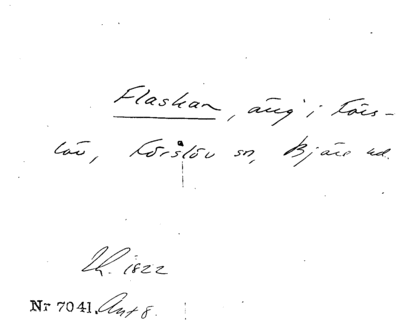 Flaskan, äng i Förs-
löv, Förslöv sn, Bjäre hd.
Lk. 1822
Nr 7041. Ant 8.